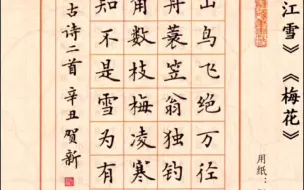 江雪》《梅花
用纸：
山鸟飞绝万径
舟蓑笠翁独钓
角数枝梅凌寒
知不是雪为有
古诗二首 辛丑 贺新